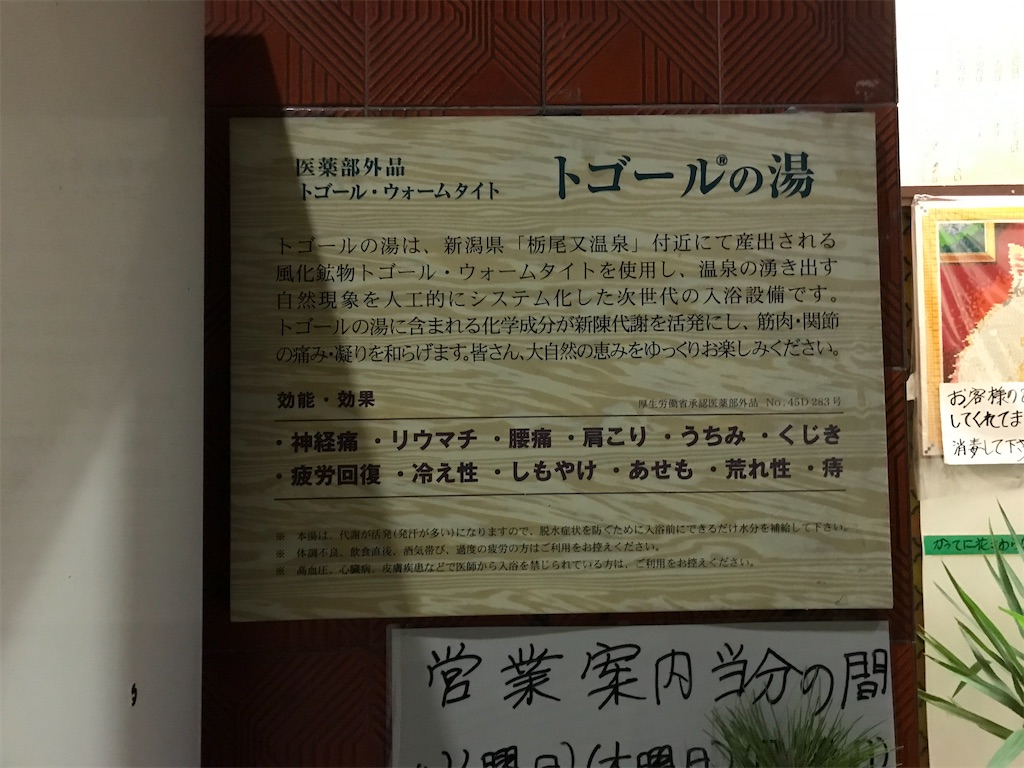 医薬部外品
トゴール・ウォームタイト
トゴール®の湯
トゴールの湯は、新潟県「栃尾又温泉」付近にて産出される
風化鉱物トゴール・ウォームタイトを使用し、温泉の湧き出す
自然現象を人工的にシステム化した次世代の入浴設備です。
トゴールの湯に含まれる化学成分が新陳代謝を活発にし、筋肉・関節
の痛み・凝りを和らげます。皆さん、大自然の恵みをゆっくりお楽しみください。
効能・効果
厚生労働省承認医薬部外品 No.45D283号
・神経痛 ・リウマチ ・腰痛 ・肩こり ・うちみ ・くじき
・疲労回復 ・冷え性 ・しもやけ ・あせも ・荒れ性 ・痔
※ 本湯は、代謝が活発(発汗が多い)になりますので、脱水症状を防ぐために入浴前にできるだけ水分を補給して下さい。
※ 体調不良、飲食直後、酒気帯び、過度の疲労の方はご利用をお控えください。
※ 高血圧、心臓病、皮膚疾患などで医師から入浴を禁じられている方は、ご利用をお控えください。
営業案内当分の間
お客様の
してくれてま
消毒して下さ
かってに花